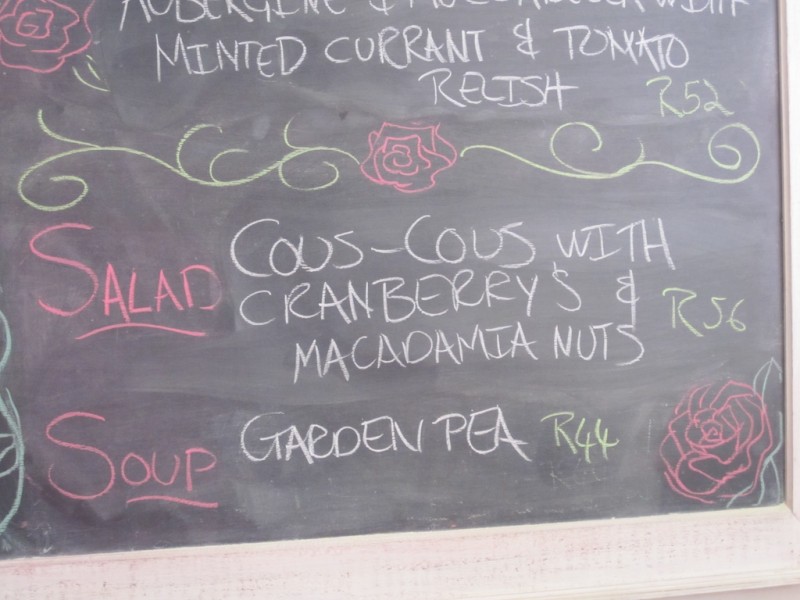 AUBERGINE & MOZZARELLA WITH
MINTED CURRANT & TOMATO
RELISH R52
SALAD COUS-COUS WITH
CRANBERRY'S & R56
MACADAMIA NUTS
SOUP GARDEN PEA R44